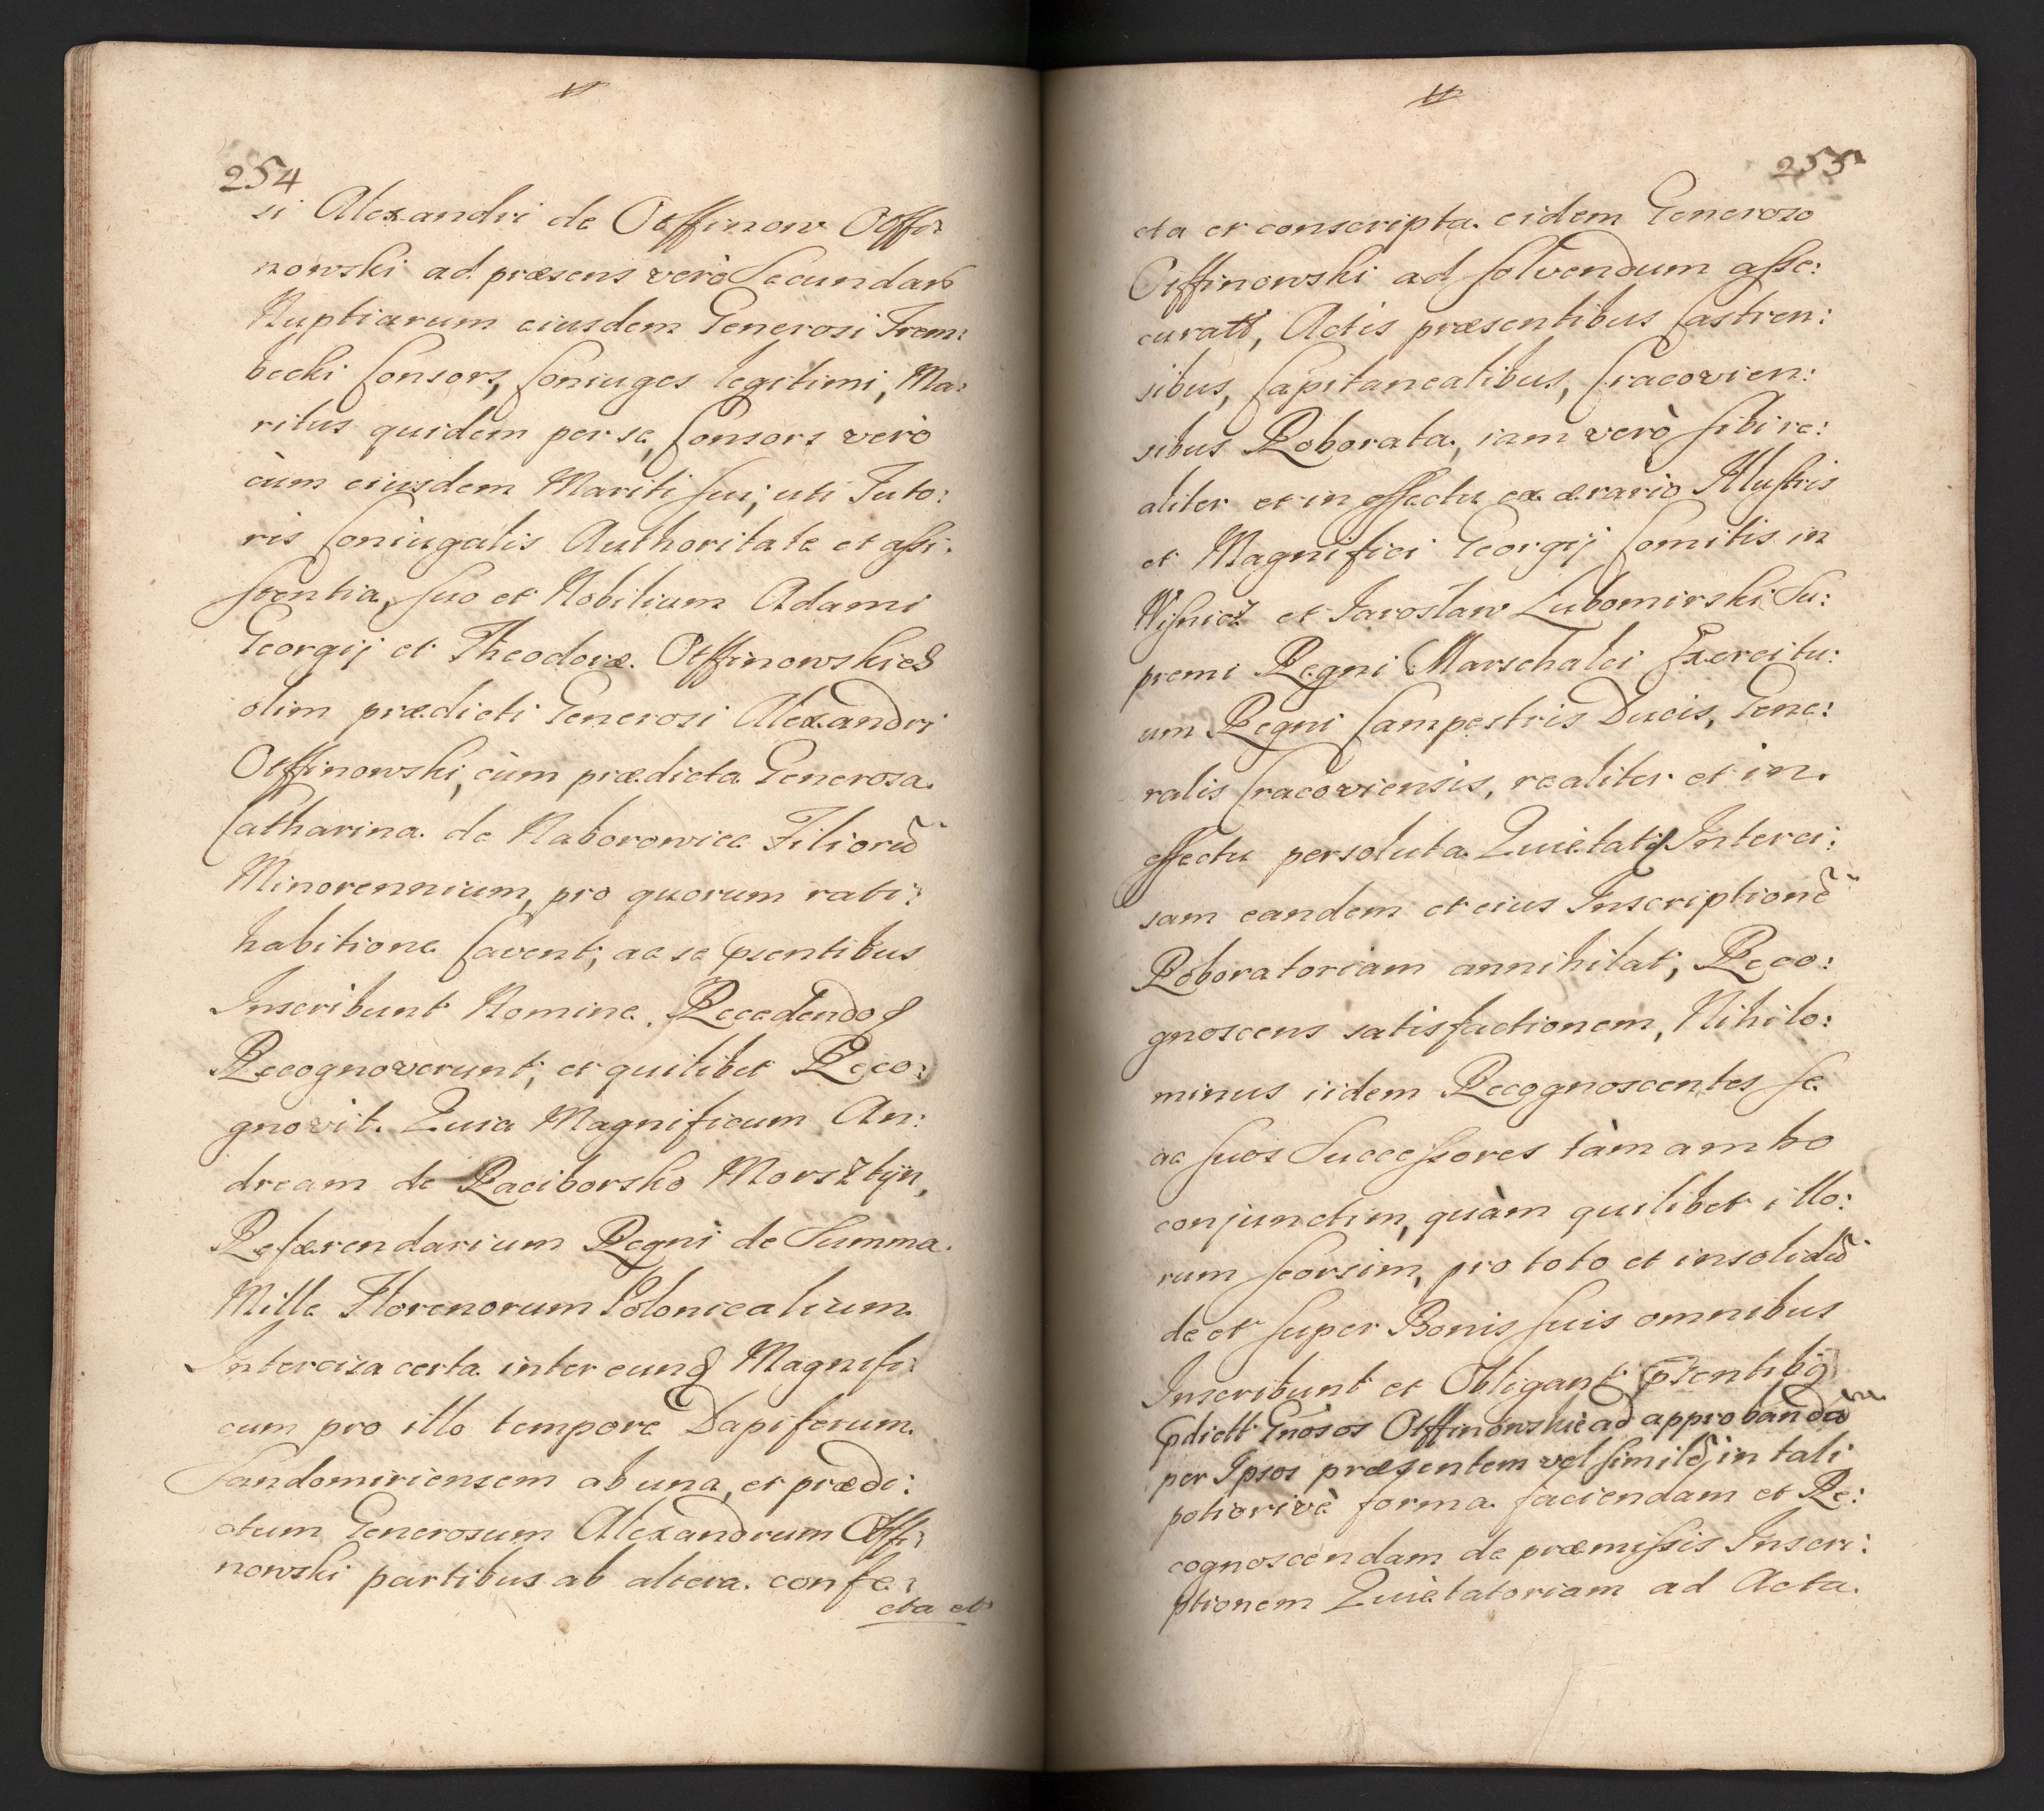 254
si Alexandri de Otffinow Otffi:
nowski ad præsens verò Secundarũ
Nuptiarum eiusdem Generosi Trem:
becki Consors, Coniuges legitimi, Ma:
ritus quidem per se, Consors verò
cùm eiusdem Mariti sui, uti Tuto:
ris Coniugalis Authoritate et assi:
stentia, suo et Nobilium Adami
Georgij et Theodoræ Otffinowskich
olim prædicti Generosi Alexandri
Otffinowski, cùm prædicta Generosa
Catharina de Naborowice Filiorũ
Minorennium, pro quorum rati:
habitione Cavent, ac se pѕentibus
Inscribunt Nomine. Recedendoq
Recognoverunt, et quilibet Reco:
gnovit. Quia Magnificum An:
dream de Raciborsko Morsztyn,
Refærendarium Regni de Summa
Mille Florenorum Polonicalium
Intercisa certa inter eunq Magnifi:
cum pro illo tempore Dapiferum
Sandomiriensem ab una, et prædi:
ctum Generosum Alexandrum Otffi:
nowski partibus ab altera confe:
cta et
255
cta et conscripta eidem Generoso
Otffinowski ad solvendum asse:
curatı, Actis præsentibus Castren:
sibus, Capitanealibus, Cracovien:
sibus Roborata, iam verò sibi re:
aliter et in effectu ex ærario Illustris
et Magnifici Georgij Comitis in
Wisnicz et Jaroslaw Lubomirski Su:
premi Regni Marschalci Exercitu:
um Regni Campestris Ducis, Gene:
ralis Cracoviensis, realiter et in
effectu persoluta Quietatq Interci:
sam eandem et eius Inscriptionẽ
Roboratoriam annihilat, Reco:
gnoscens satisfactionem, Nihilo:
minus iidem Recognoscentes se
ac suos Successores tàm ambo
conjunctim, quàm quilibet illo:
rum seorsim, pro toto et insolidũ
de et super Bonis suis omnibus
Inscribunt et Obligant pѕentibq
pdictt Gnosos Otffinowskie ad approbandam
per Ipsos præsentem vel similẽ, in tali
potiorivè forma faciendam et Re:
cognoscendam de præmissis Inscri:
ptionem Quietatoriam ad Acta